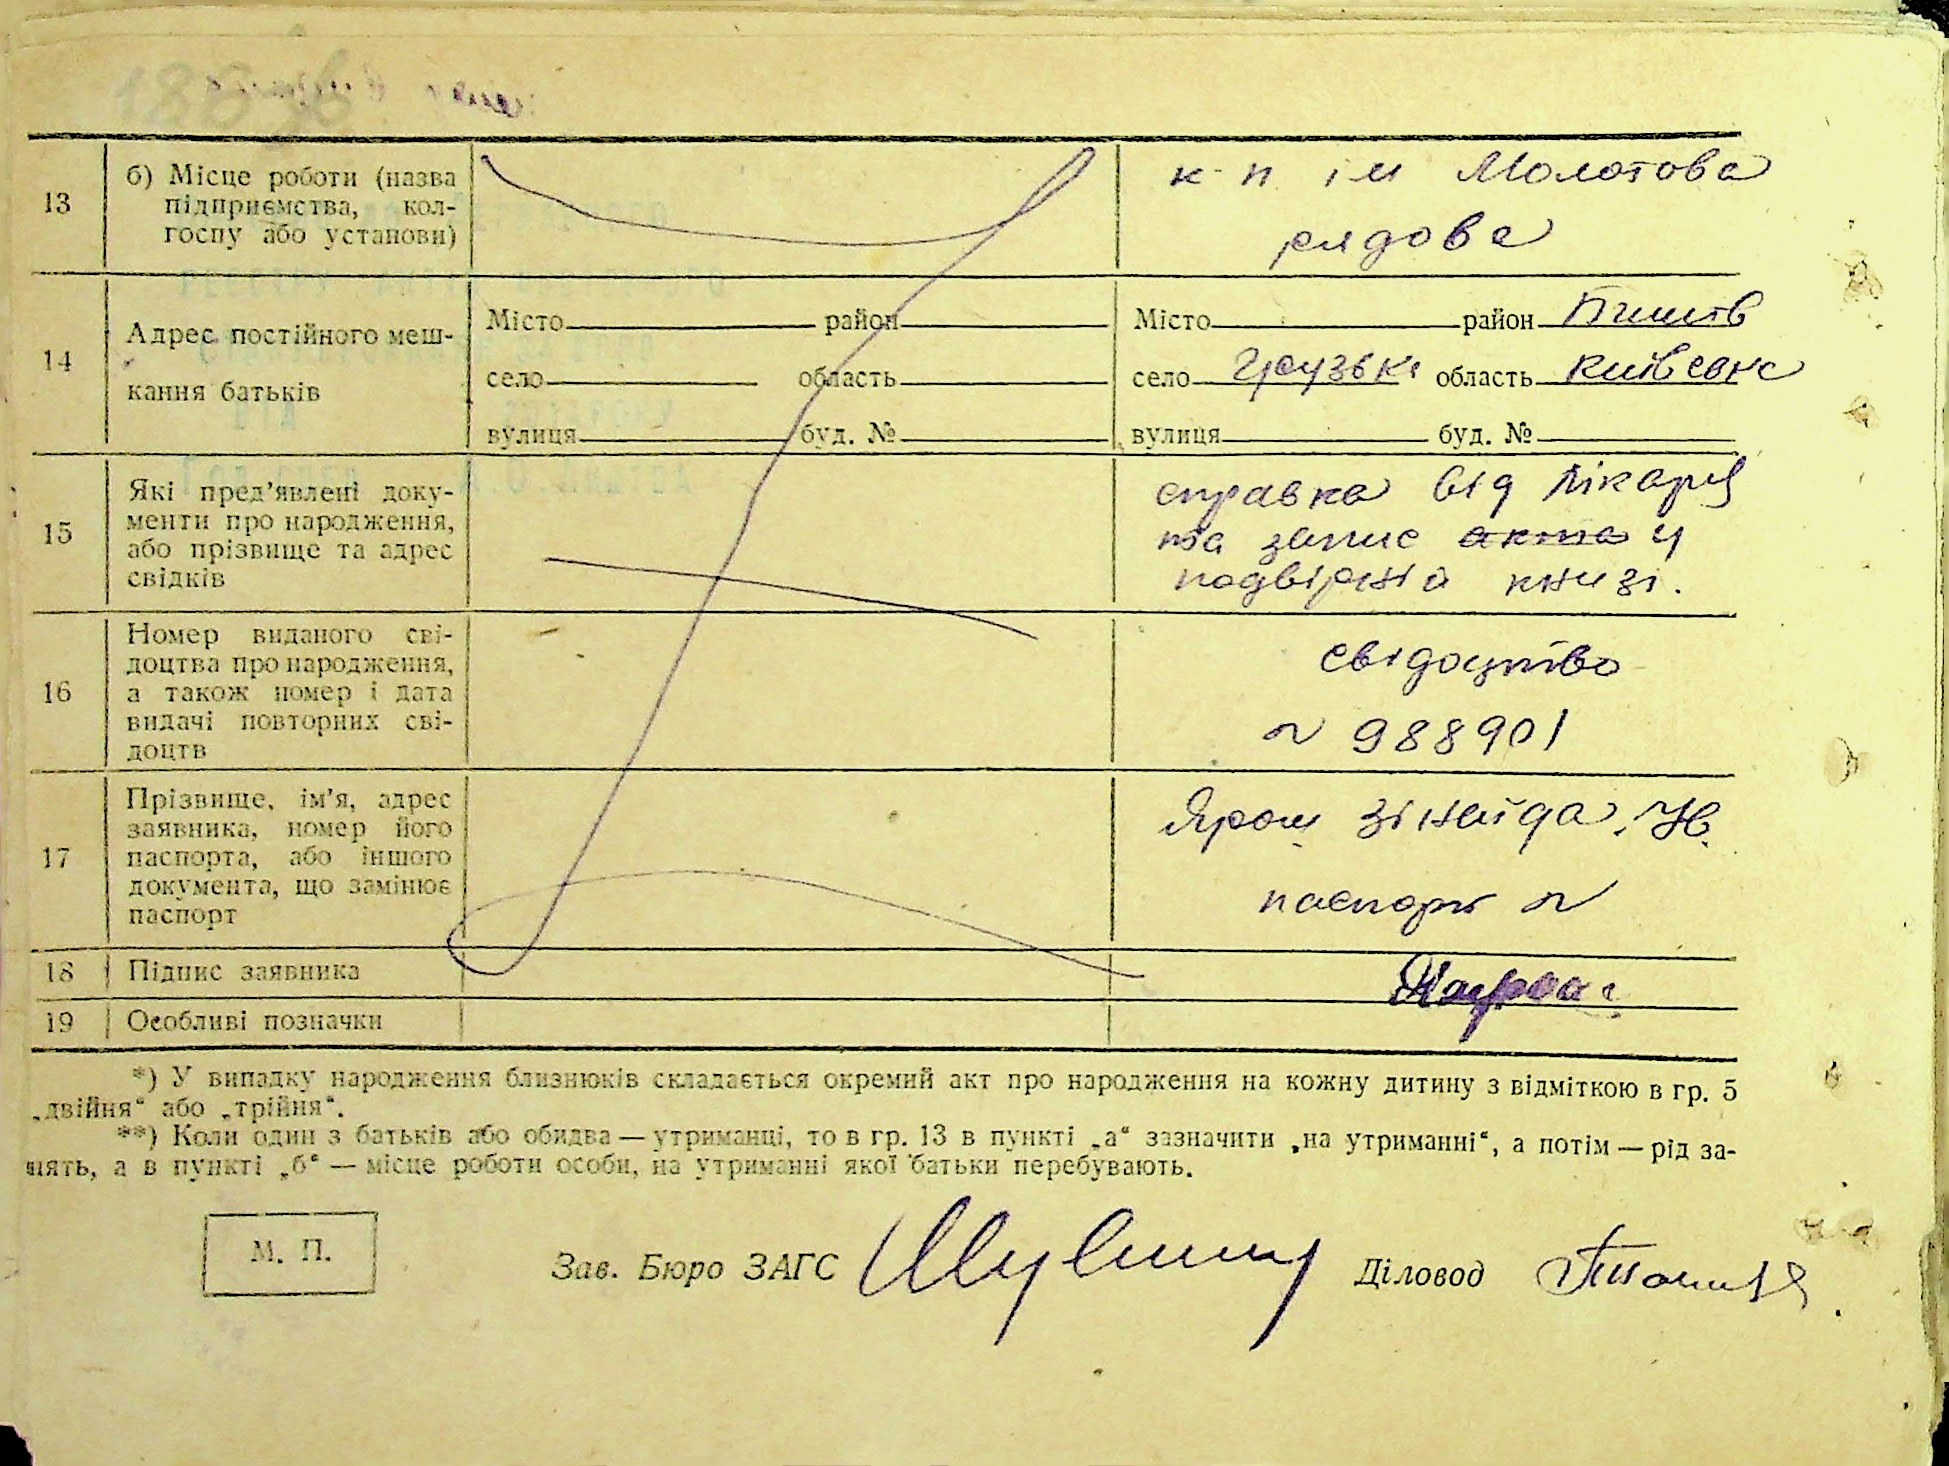 13 б) Місце роботи (назва
підприємства, кол-
госпу або установи)
к-п ім Молотова
рядова
14 Адрес постійного меш-
кання батьків
Місто район Місто район
село область село Грузьке область Київськ
вулиця буд. № вулиця буд. №
15 Які пред’явлені доку-
менти про народження,
або прізвище та адрес
свідків
справка від лікаря
та запис акта у
подвірній книзі.
16 Номер виданого сві-
доцтва про народження,
а також номер і дата
видачі повторних сві-
доцтв
свідоцтво
№ 988901
17 Прізвище, ім’я, адрес
заявника, номер його
паспорта, або іншого
документа, що замінює
паспорт
Ярош Зінаїда
паспорт №
18 Підпис заявника
19 Особливі позначки
*) У випадку народження близнюків складається окремий акт про народження на кожну дитину з відміткою в гр. 5
„двійня“ або „трійня“.
**) Коли один з батьків або обидва — утриманці, то в гр. 13 в пункті „а“ зазначити „на утриманні“, а потім — рід за-
нять, а в пункті „б“ — місце роботи особи, на утриманні якої батьки перебувають.
М. П.
Зав. Бюро ЗАГС Діловод